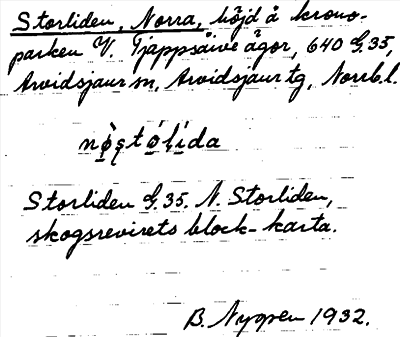 Storliden, Norra, höjd å krono-
parken V. Tjappsåive ägor, 640 G.35,
Arvidsjaur sn, Arvidsjaur tg, Norrb.l.
nǫ̀ștǫlida
Storliden G.35. N. Storliden,
skogsrevirets block-karta.
B. Nygren 1932.